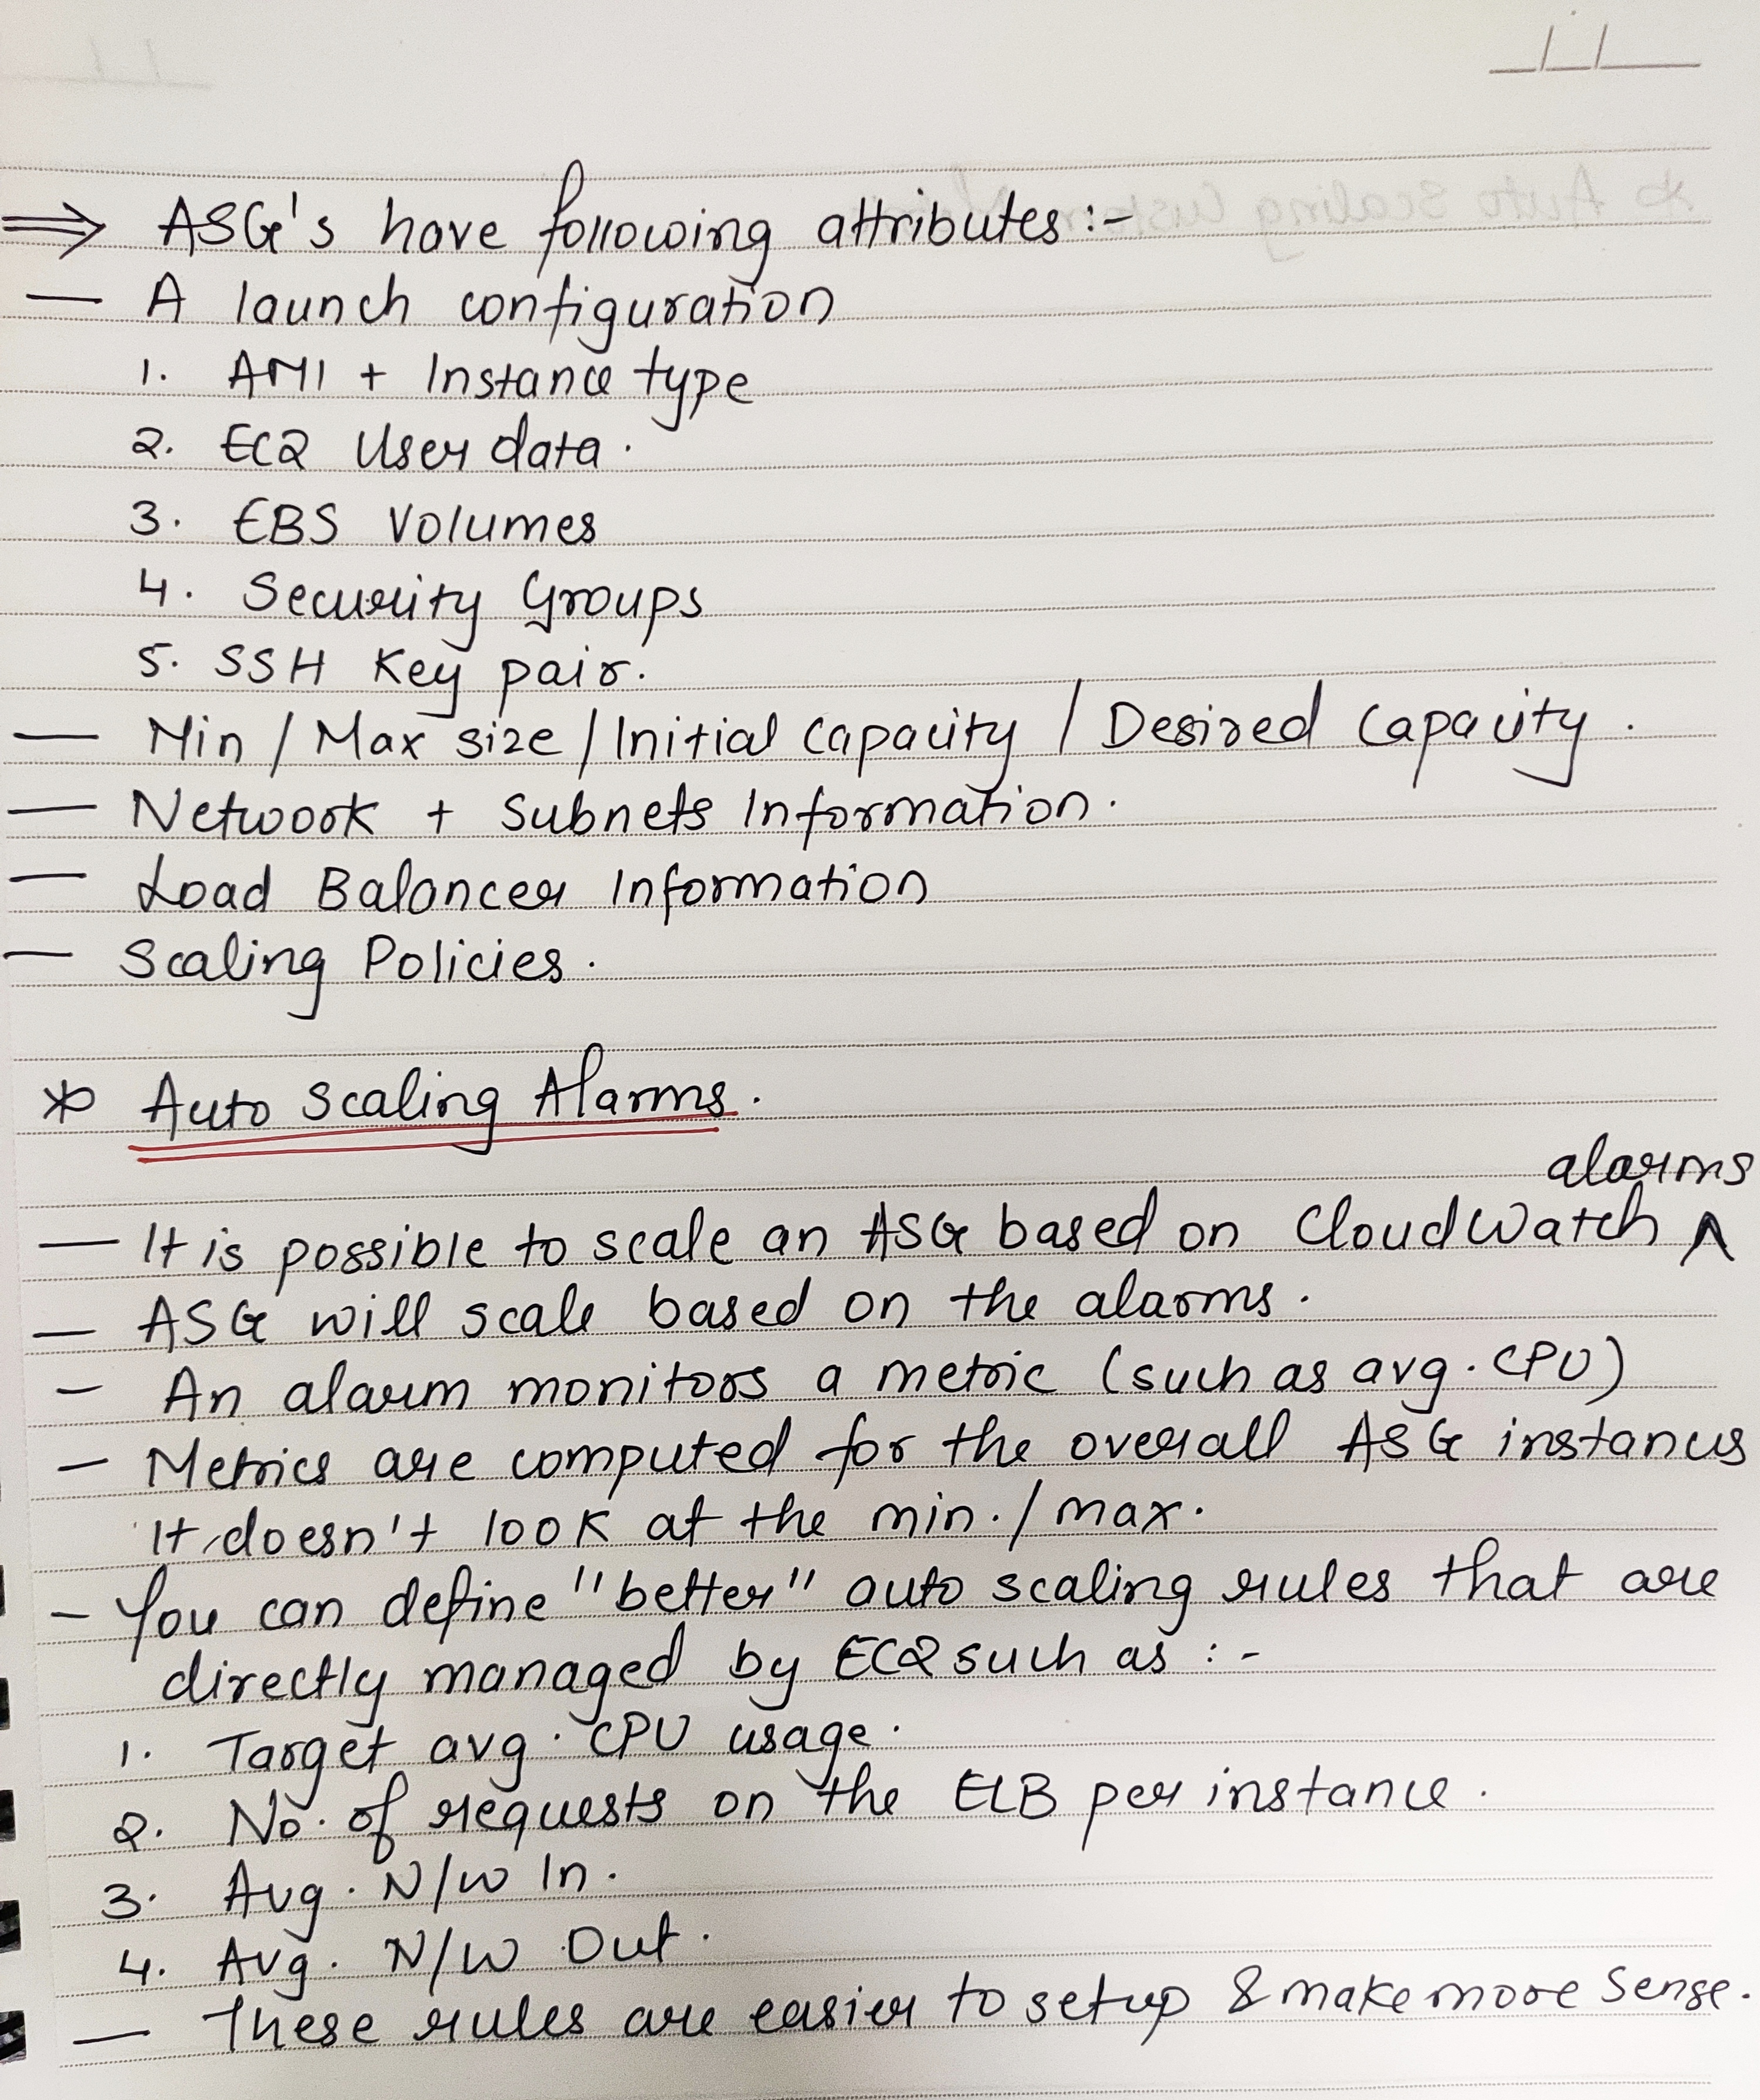 ⇒ ASG's have following attributes :-
— A launch configuration
1. AMI + Instance type
2. EC2 User data.
3. EBS Volumes
4. Security Groups
5. SSH Key pair.
— Min / Max size / Initial Capacity / Desired Capacity.
— Network + Subnets Information.
— Load Balancer Information
— Scaling Policies.
* Auto Scaling Alarms.
alarms
— It is possible to scale an ASG based on CloudWatch ^
— ASG will scale based on the alarms.
— An alarm monitors a metric (such as avg. CPU)
— Metrics are computed for the overall ASG instances
It doesn't look at the min. / max.
- You can define "better" auto scaling rules that are
directly managed by EC2 such as :-
1. Target avg. CPU usage.
2. No. of requests on the ELB per instance.
3. Avg. N/W In.
4. Avg. N/W Out.
— These rules are easier to setup & make more sense.